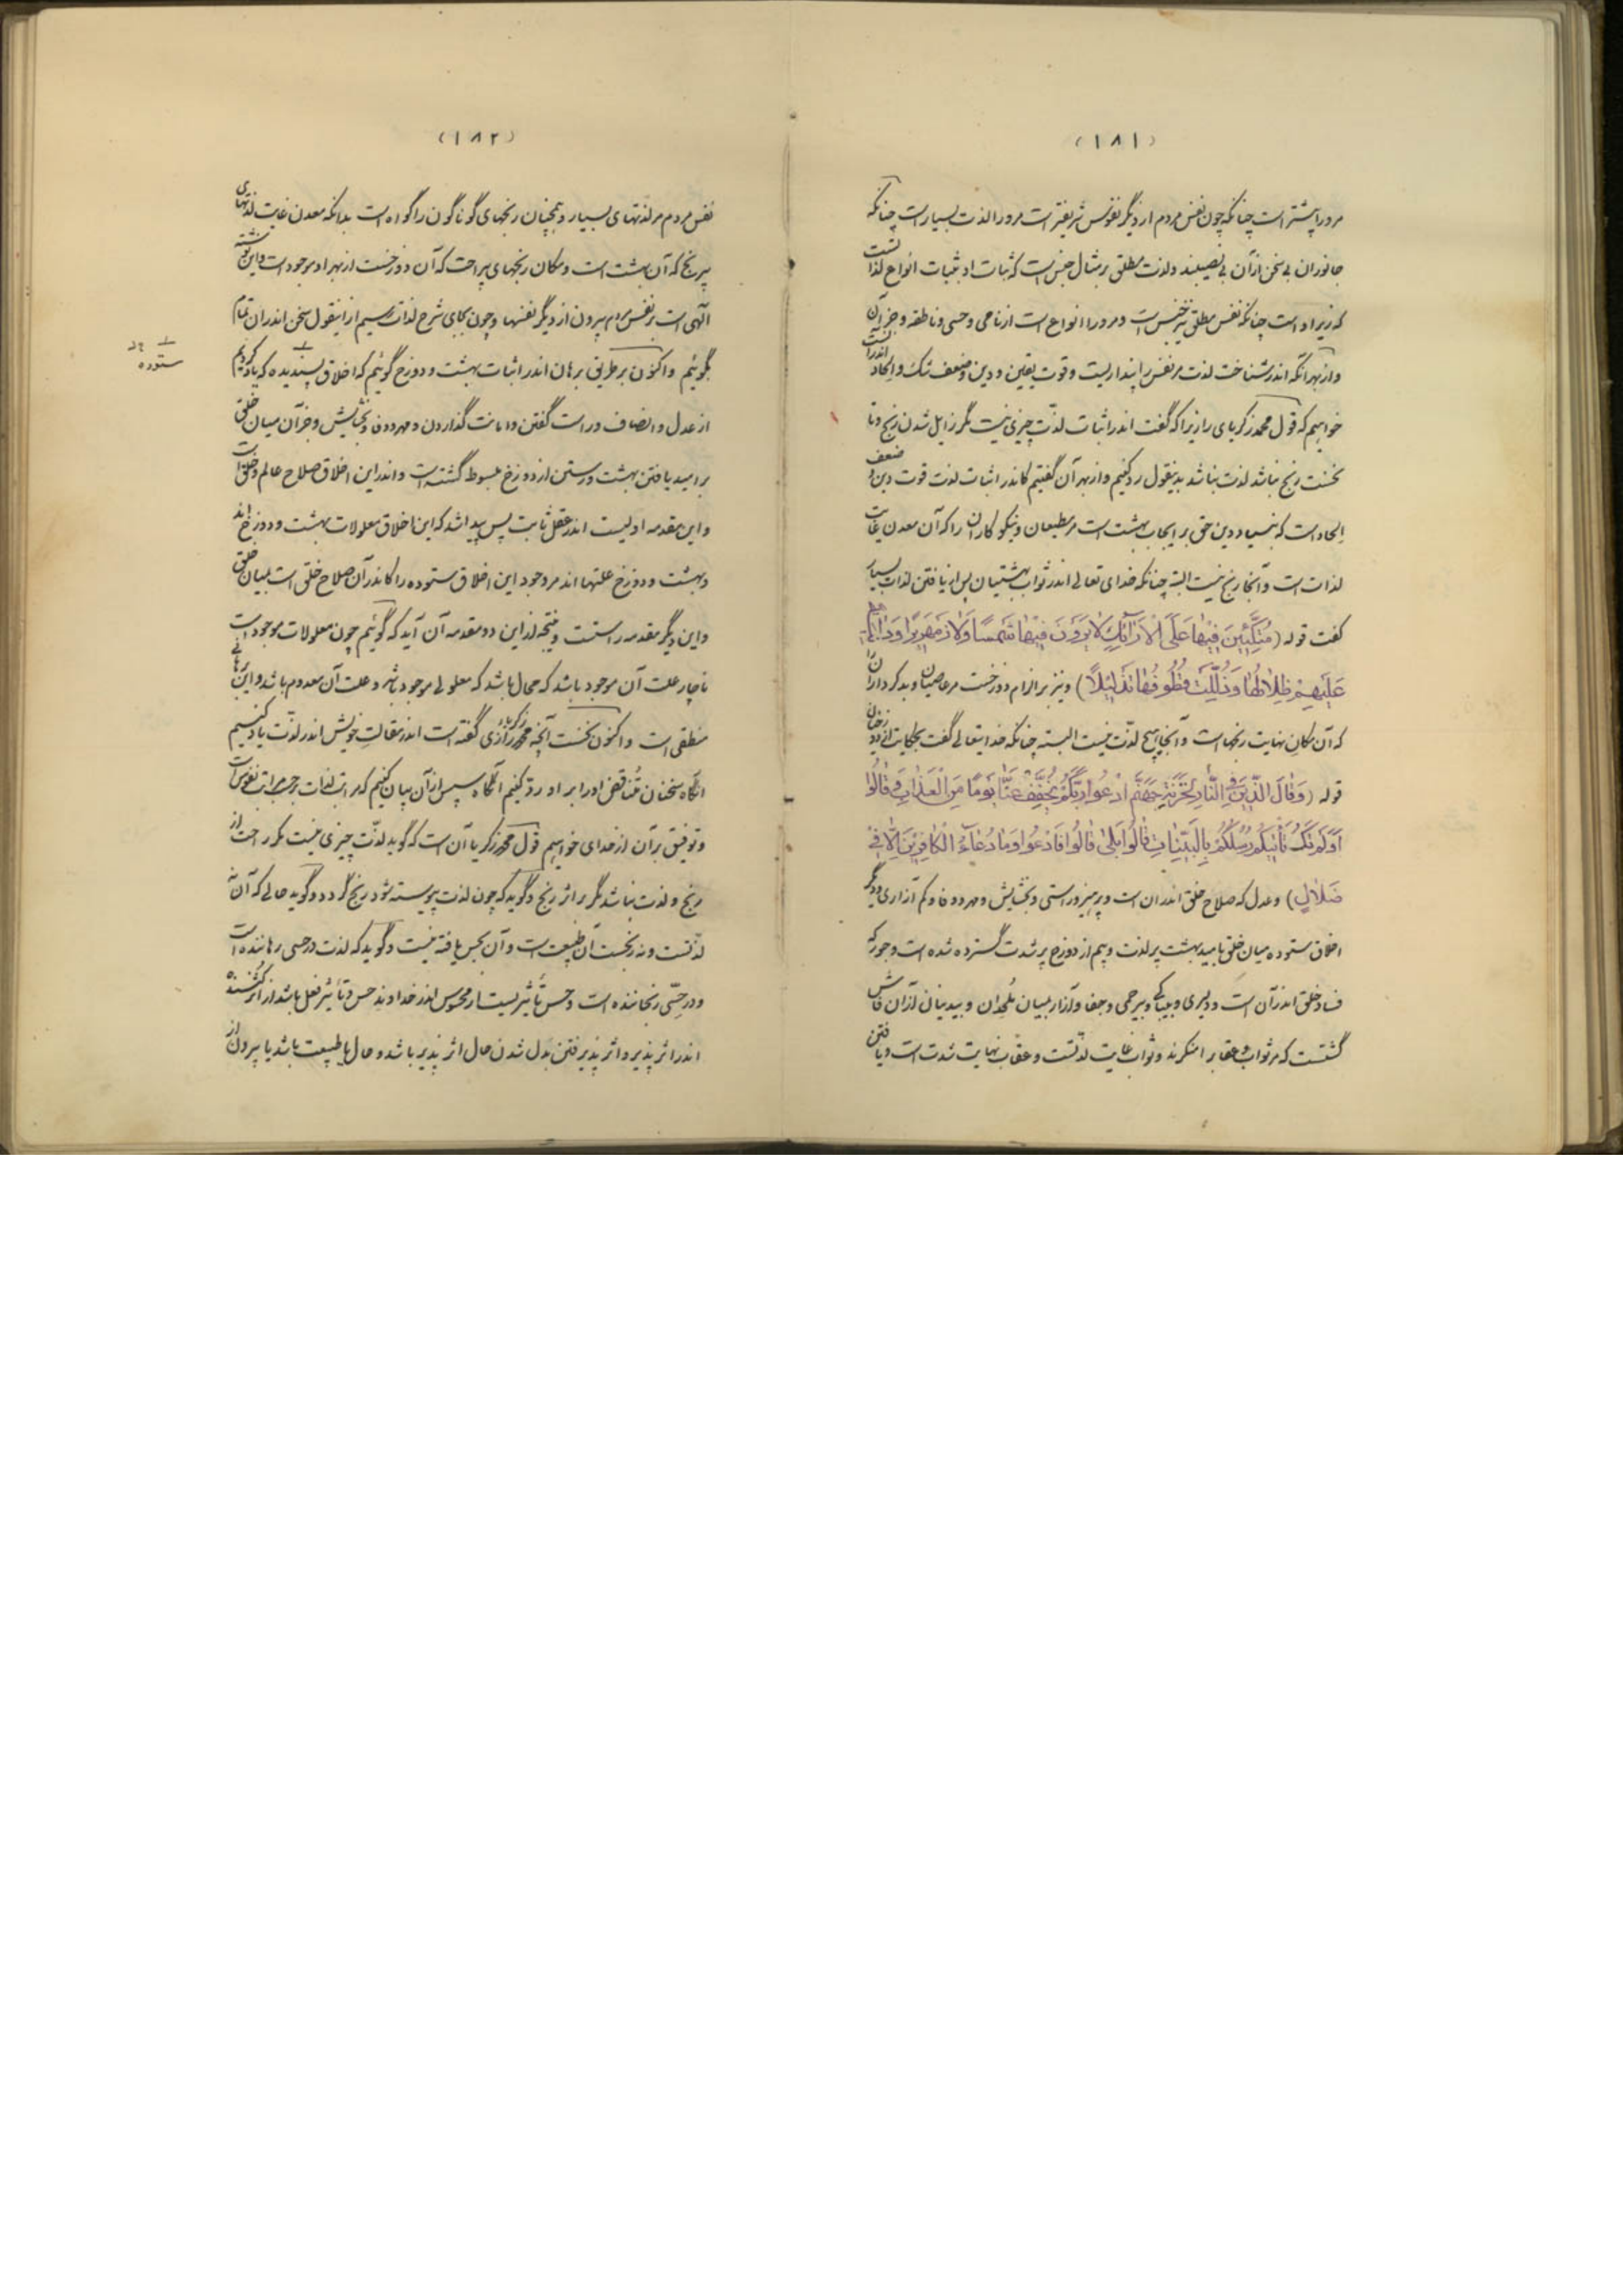 (۱۸۱)
مرورا بیشتر است چنانکه چون نفس مردم از دیگر نفوس شریفتر است مرورا لذت بسیار است چنانکه
جانوران بی سخن از آن بی نصیبند ولذت مطلق بر مثال جنس است که ثبات او بثبات انواع لذات است
که زیر اوست چنانکه نفس مطلق نیز جنس است و مرورا انواع است از نامی و حسی و ناطقه و جز آن
و از بهر آنکه اندر شناخت لذت مر نفس را پنداریست و قوت یقین و دین و ضعف شک و الحاد اندر آنست
خواهیم که قول محمد زکریای رازی را که گفت اندر اثبات لذت چیزی نیست مگر زایل شدن رنج و تا
نخست رنج نباشد لذت نباشد بدینقول رد کنیم و از بهر آن گفتیم کاندر اثبات لذت قوت دین و ضعف
الحاد است که بنیاد دین حق بر ایجاب بهشت است مر مطیعان و نیکوکاران را که آن معدن غایت
لذات است و آنجا رنج نیست البته چنانکه خدای تعالی اندر ثواب بهشتیان پس از یافتن لذات بسیار
گفت قوله (مُتَّكِئِينَ فِيهَا عَلَى الْأَرَائِكِ لَا يَرَوْنَ فِيهَا شَمْسًا وَلَا زَمْهَرِيرًا وَدَانِيَةً
عَلَيْهِمْ ظِلَالُهَا وَذُلِّلَتْ قُطُوفُهَا تَذْلِيلًا) و نیز بر الزام دوزخست مر عاصیان و بدکرداران را
که آن مکان نهایت رنجهاست و آنجا هیچ لذت نیست البته چنانکه خدایتعالی گفت بحکایت از دوزخیان
قوله (وَقَالَ الَّذِينَ فِي النَّارِ لِخَزَنَةِ جَهَنَّمَ ادْعُوا رَبَّكُمْ يُخَفِّفْ عَنَّا يَوْمًا مِنَ الْعَذَابِ قَالُوا
أَوَلَمْ تَكُ تَأْتِيكُمْ رُسُلُكُمْ بِالْبَيِّنَاتِ قَالُوا بَلَى قَالُوا فَادْعُوا وَمَا دُعَاءُ الْكَافِرِينَ إِلَّا فِي
ضَلَالٍ) و عدل که صلاح خلق اندران است و پرهیز و راستی و بخشایش و مهر و وفا و کم آزاری و دیگر
اخلاق ستوده میان خلق بامید بهشت پر لذت و بیم از دوزخ پر شدت گسترده شده است و جور که
فساد خلق اندر آن است و دلیری و بیباکی و بیرحمی و جفا و آزار بمیان ملحدان و بیدینان از آن فاش
گشتست که مر ثواب و عقاب را منکرند و ثواب غایت لذتست و عقاب نهایت شدت است و یافتن
(۱۸۲)
نفس مردم مر لذتهای بسیار و همچنان رنجهای گوناگون را گواه است بدانکه معدن غایت لذتهای
بیرنج که آن بهشت است و مکان رنجهای بیراحت که آن دوزخست از بهر او موجود است و این نوشته
الهی است بر نفس مردم بیرون از دیگر نفسها و چون بجای شرح لذات رسیم از اینقول سخن اندران تمام
بگوئیم و اکنون بر طریق برهان اندر اثبات بهشت و دوزخ گوئیم که اخلاق پسندیده که یاد کردیم
ستوده
از عدل و انصاف و راست گفتن و امانت گذاردن و مهر و وفا و بخشایش و جز آن میان خلق
بر امید یافتن بهشت و رستن از دوزخ مبسوط گشته است و اندر این اخلاق صلاح عالم و خلق است
و این مقدمه اولیست اندر عقل ثابت پس پیدا شد که این اخلاق معلولات بهشت و دوزخ اند
و بهشت و دوزخ علتها اند مر وجود این اخلاق ستوده را کاندر آن صلاح خلق است بمیان خلق
و این دیگر مقدمه راستست و نتیجه از این دو مقدمه آن آید که گوئیم چون معلولات موجود است
ناچار علت آن موجود باشد که محال باشد که معلولی موجود باشد و علت آن معدوم باشد و این برهانی
منطقی است و اکنون نخست آنچه محمد زکریاء رازی گفته است اندر مقالت خویش اندر لذت یاد کنیم
انگاه سخنان متناقض او را بر او رد کنیم آنگاه سپس از آن بیان کنیم که مراتب لذات بر حسب مراتب نفوس است
و توفیق بر آن از خدای خواهیم قول محمد زکریا آن است که گوید لذت چیزی نیست مگر راحت از
رنج و لذت نباشد مگر بر اثر رنج و گوید که چون لذت پیوسته شود رنج گردد و گوید حالی که آن نه
لذتست و نه رنجست آن طبیعت است و آن بحس یافته نیست و گوید که لذت در حسی رهاننده است
و درد حسی رنجاننده است و حس تأثیریست از محسوس اندر خداوند حس و تأثیر فعل باشد از اثر کننده
اندر اثر پذیر و اثر پذیرفتن بدل شدن حال اثر پذیر باشد و حال یا طبیعت باشد یا بیرون از